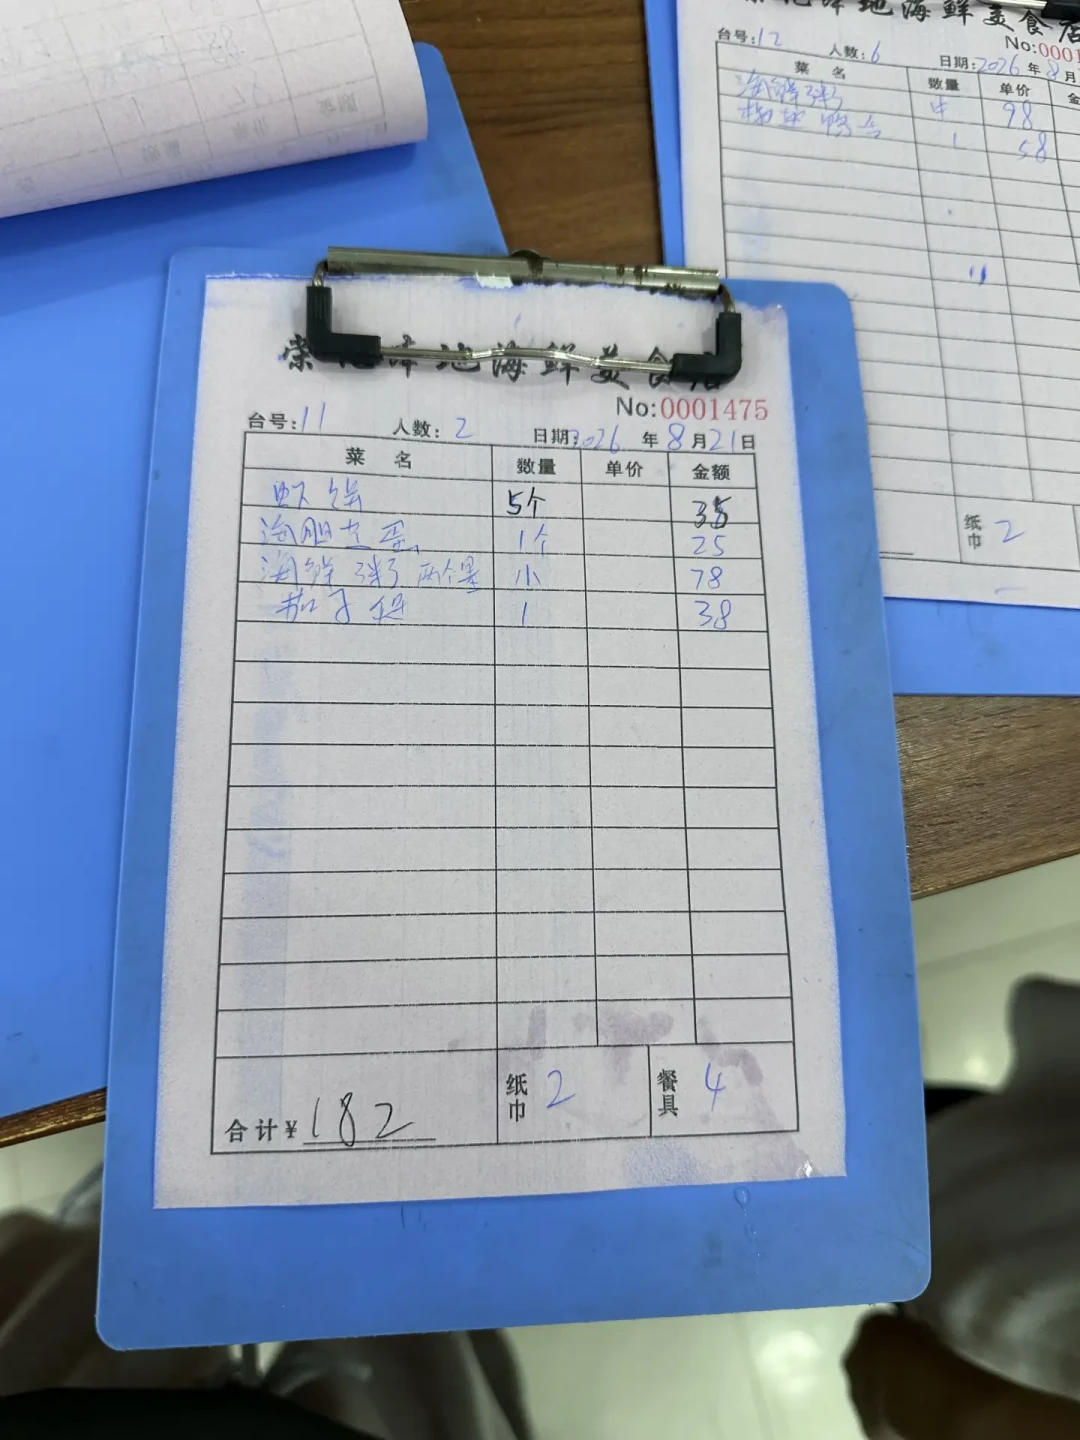 地海鲜美食店
No:0001475
台号:11 人数:2 日期:2026年8月21日
菜名 数量 单价 金额
虾饼 5个 35
海胆蒸蛋 1个 25
海鲜粥 两个量 小 78
茄子煲 1 38
合计¥182 纸巾 2 餐具 4
地海鲜美食店
No:0001
台号:12 人数:6 日期:2026年8月
菜名 数量 单价 金
海鲜粥 中 98
1 58
纸巾 2